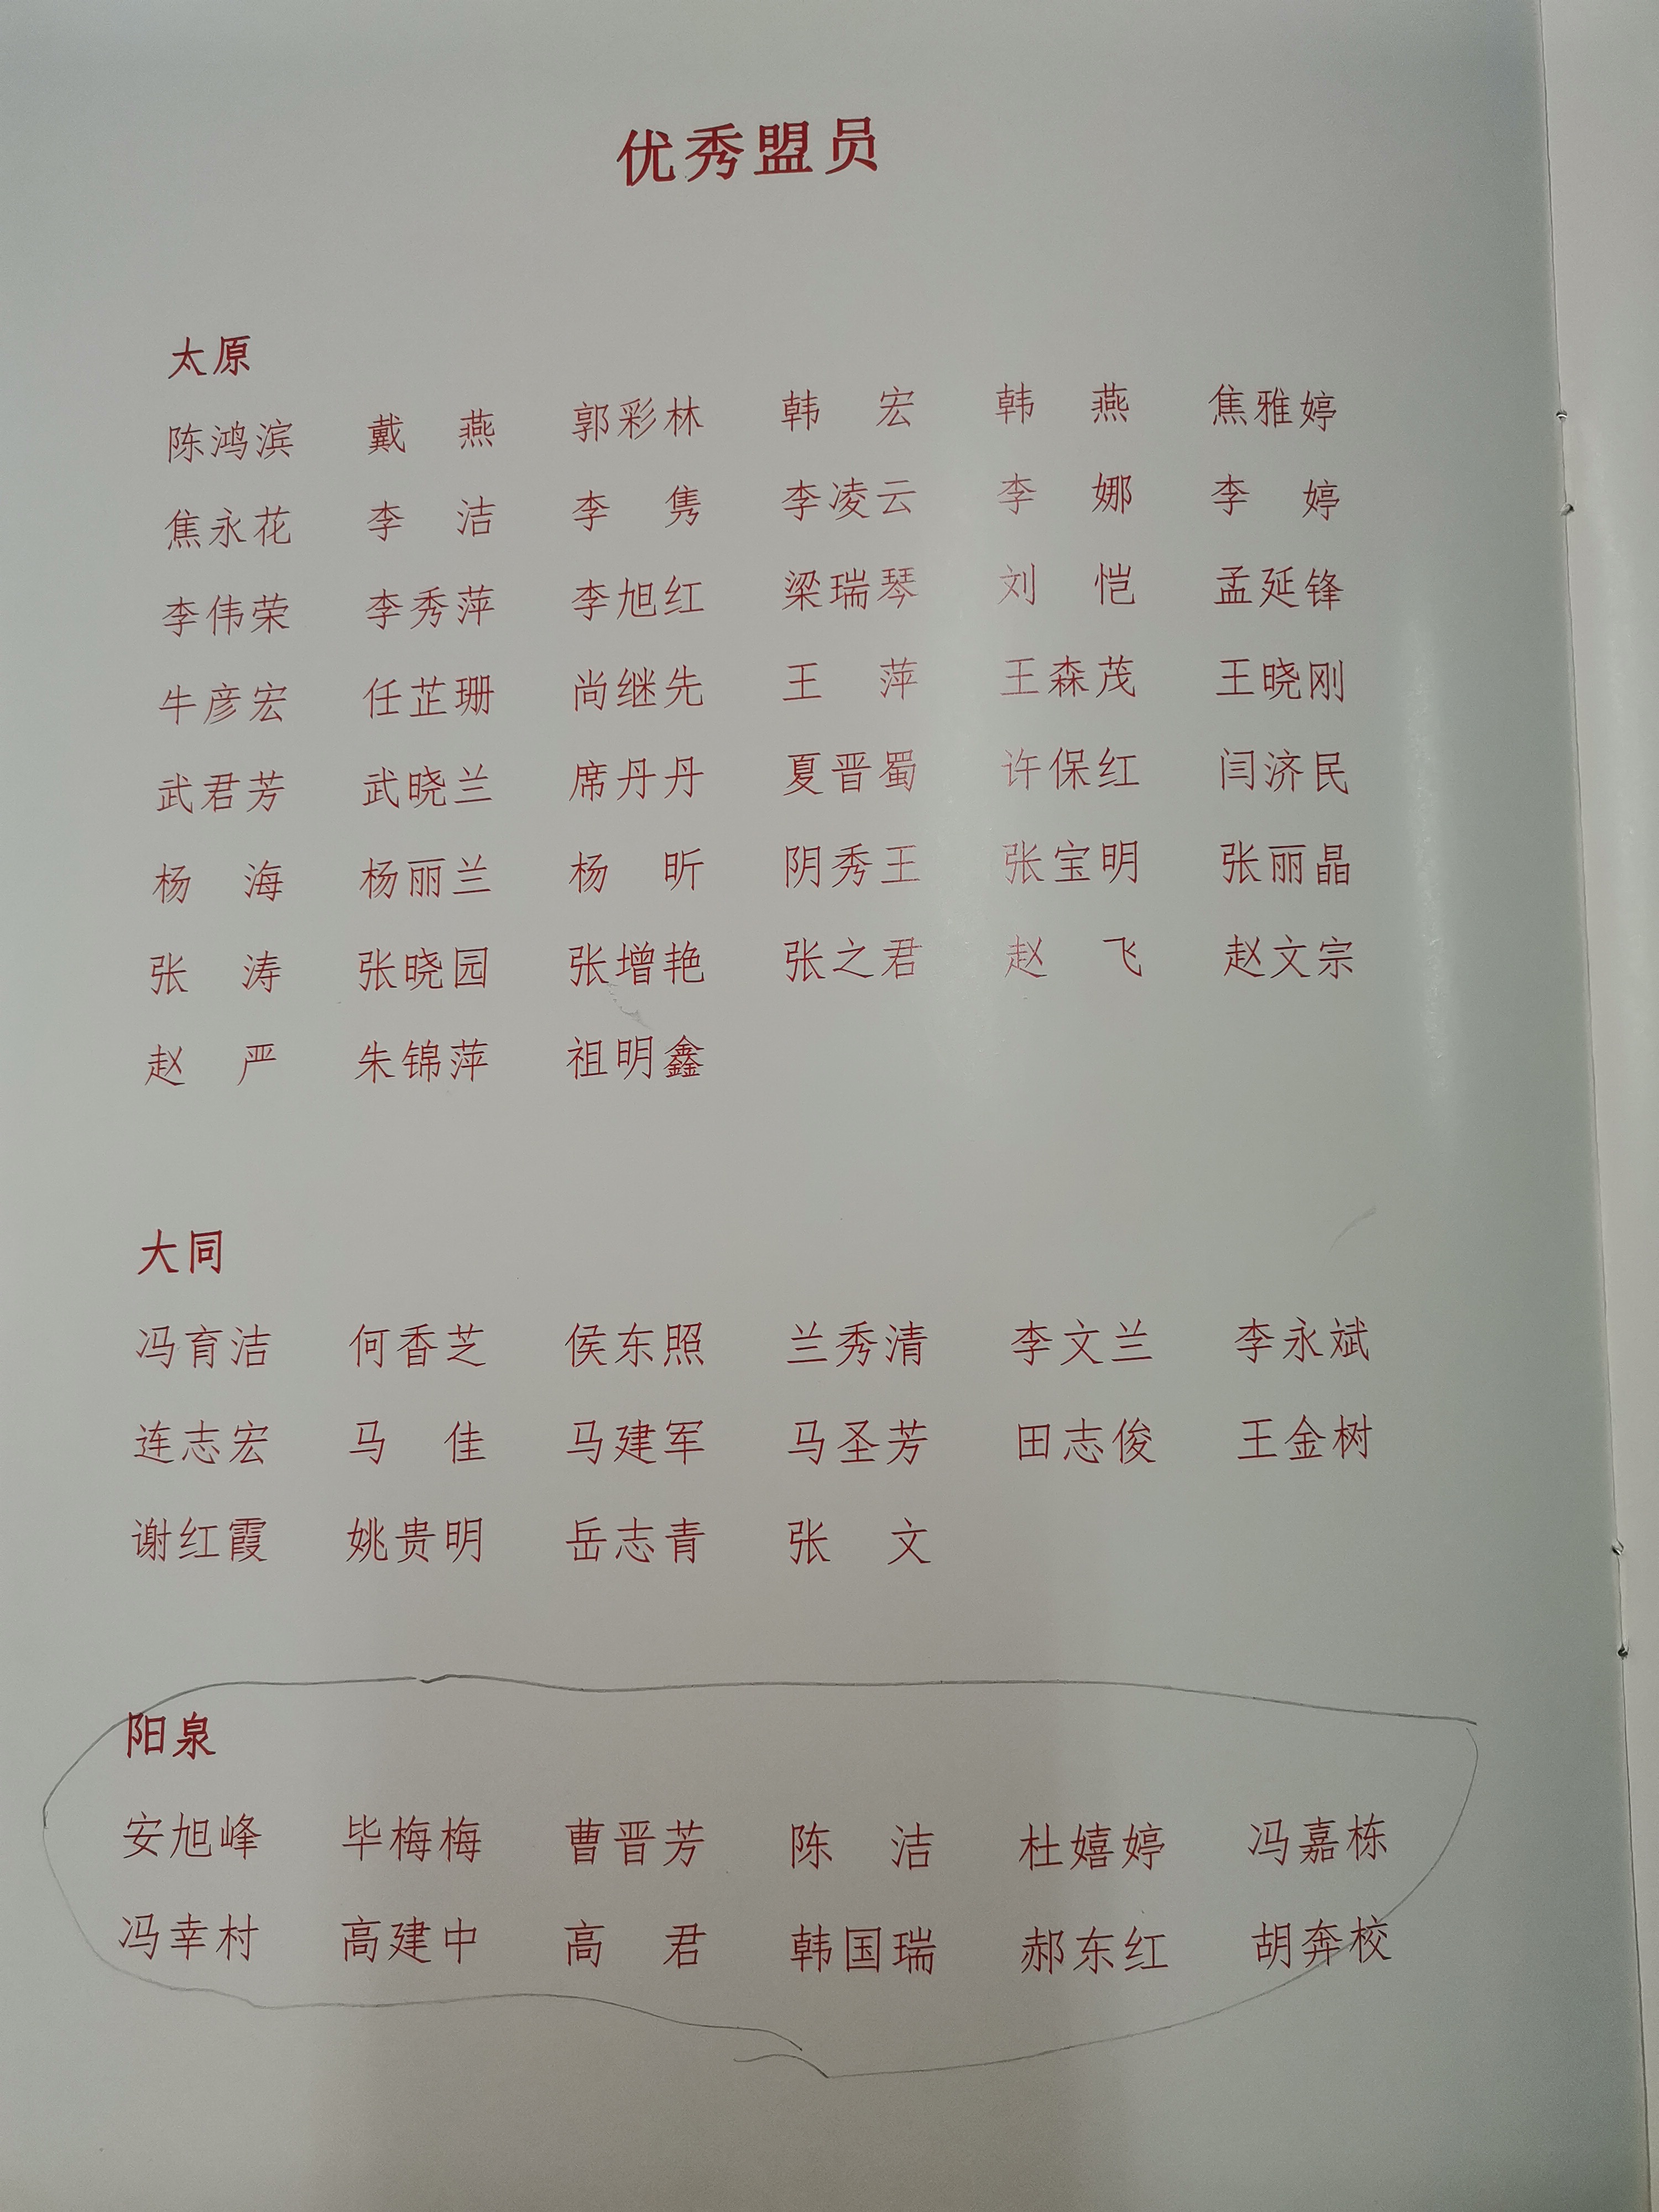 优秀盟员
太原
陈鸿滨 戴 燕 郭彩林 韩 宏 韩 燕 焦雅婷
焦永花 李 洁 李 隽 李凌云 李 娜 李 婷
李伟荣 李秀萍 李旭红 梁瑞琴 刘 恺 孟延锋
牛彦宏 任芷珊 尚继先 王 萍 王森茂 王晓刚
武君芳 武晓兰 席丹丹 夏晋蜀 许保红 闫济民
杨 海 杨丽兰 杨 昕 阴秀王 张宝明 张丽晶
张 涛 张晓园 张增艳 张之君 赵 飞 赵文宗
赵 严 朱锦萍 祖明鑫
大同
冯育洁 何香芝 侯东照 兰秀清 李文兰 李永斌
连志宏 马 佳 马建军 马圣芳 田志俊 王金树
谢红霞 姚贵明 岳志青 张 文
阳泉
安旭峰 毕梅梅 曹晋芳 陈 洁 杜嬉婷 冯嘉栋
冯幸村 高建中 高 君 韩国瑞 郝东红 胡奔校